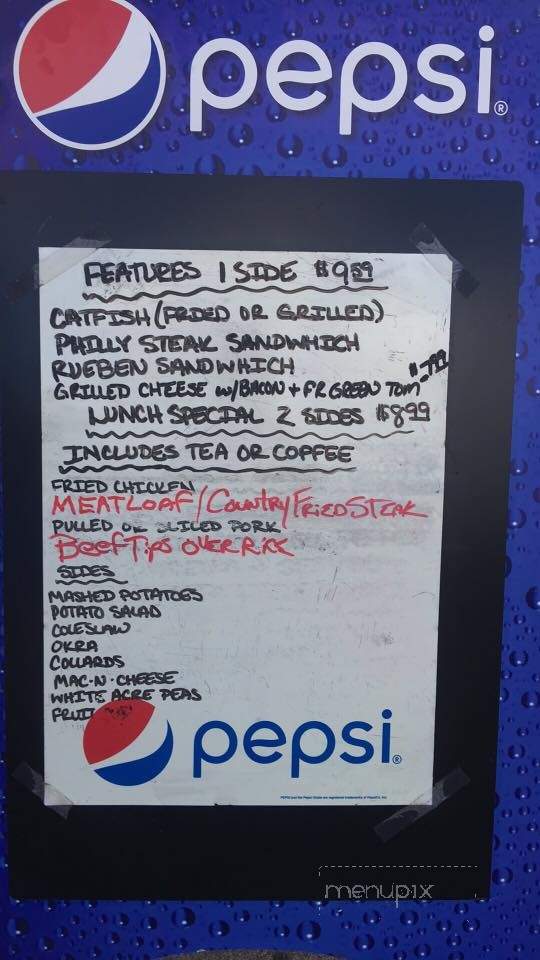 pepsi®
FEATURES 1 SIDE $9.59
CATFISH (FRIED OR GRILLED)
PHILLY STEAK SANDWHICH
RUEBEN SANDWHICH
GRILLED CHEESE W/BACON + FR GREEN TOM 7.99
LUNCH SPECIAL 2 SIDES $8.99
INCLUDES TEA OR COFFEE
FRIED CHICKEN
MEATLOAF/Country Fried Steak
PULLED OR SLICED PORK
Beef Tips OVER Rice
SIDES
MASHED POTATOES
POTATO SALAD
COLESLAW
OKRA
COLLARDS
MAC-N-CHEESE
WHITE ACRE PEAS
FRUIT
pepsi®
menupix